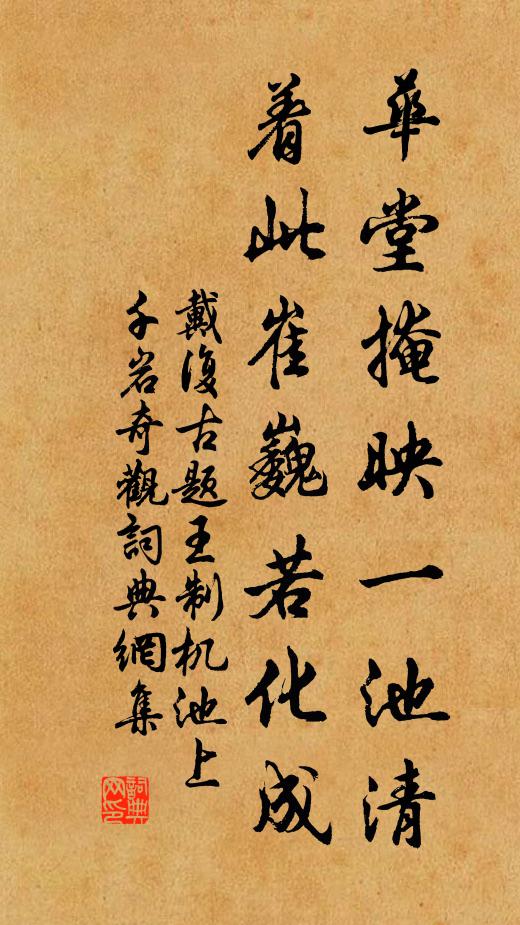 華堂掩映一池清
着此崔巍若化成
戴復古题王制机池上
千岩奇觀詞典網集
詞典网印